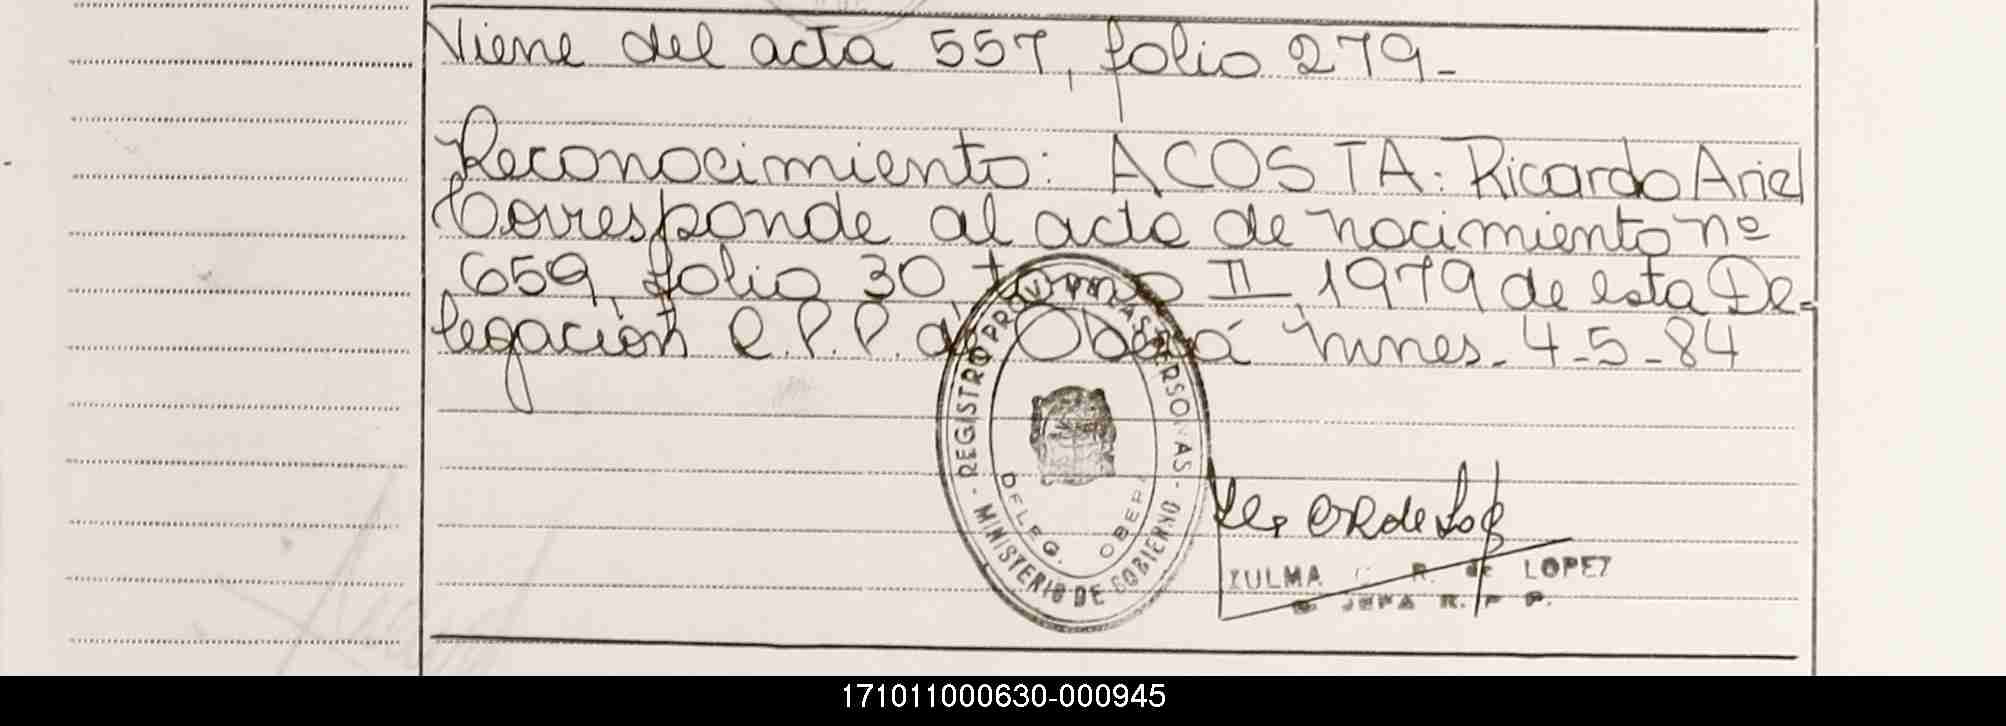 Viene del acta 557, folio 279-
Reconocimiento: ACOSTA: Ricardo Ariel
Corresponde al acta de nacimiento nº
659, folio 30, tomo II, 1979 de esta De-
legación R.P.P. de Oberá Mnes. 4-5-84
REGISTRO PROVINCIAL PERSONAS
MINISTERIO DE GOBIERNO
DELEG. OBERA
ZULMA C. R. de LOPEZ
JEFA R. P. P.
171011000630-000945